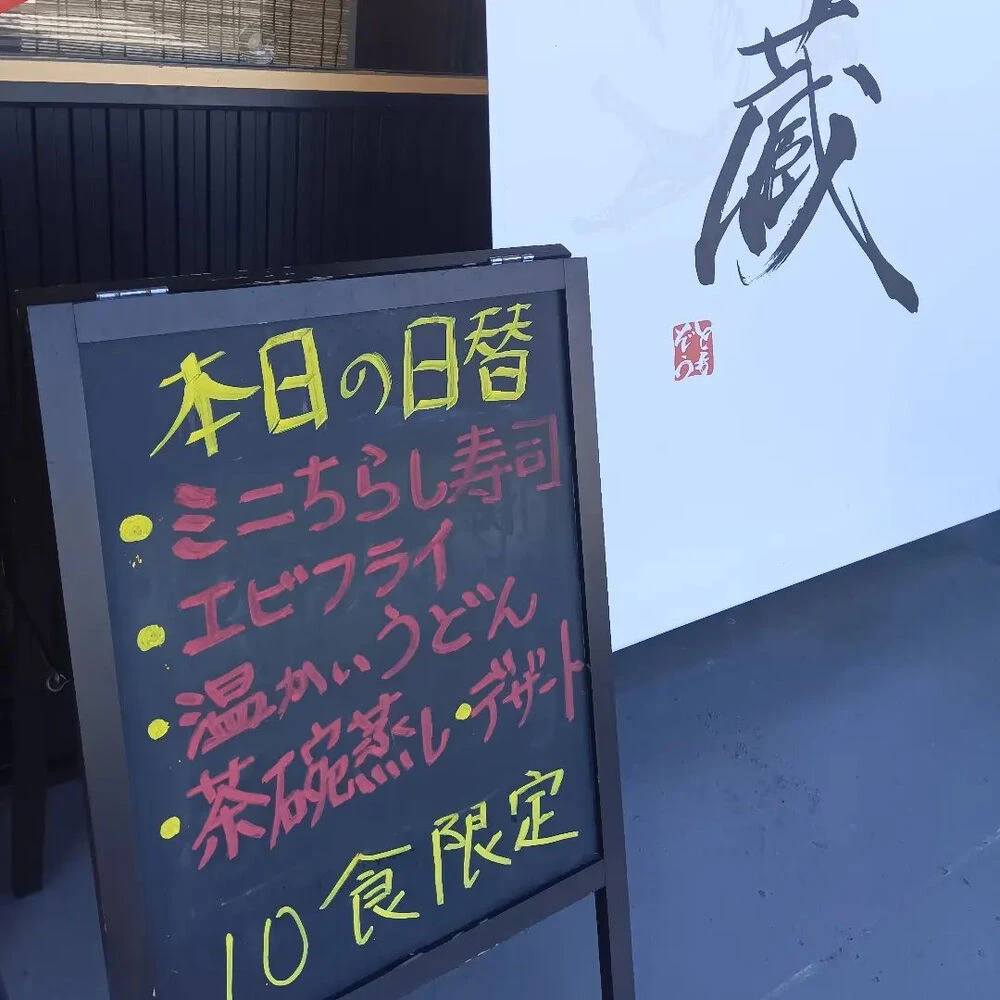 本日の日替
・ミニちらし寿司
・エビフライ
・温かいうどん
・茶碗蒸し・デザート
10食限定
蔵